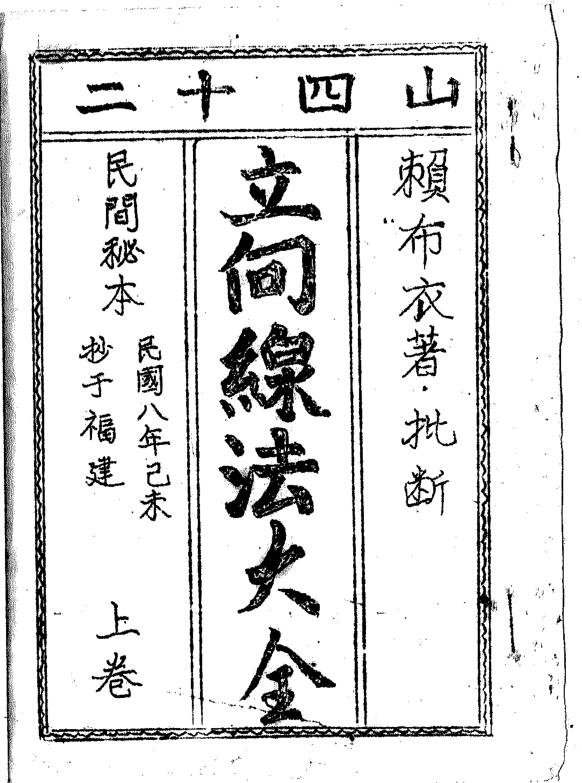 山四十二
賴布衣著·批断
立向線法大全
民間秘本
民國八年己未
抄于福建
上卷